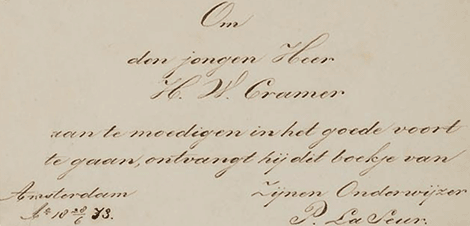 Om
den jongen Heer
H. W. Cramer
aan te moedigen in het goede voort
te gaan, ontvangt hij dit boekje van
Amsterdam Zijnen Onderwijzer
18 28/6 73. P. La Seur.